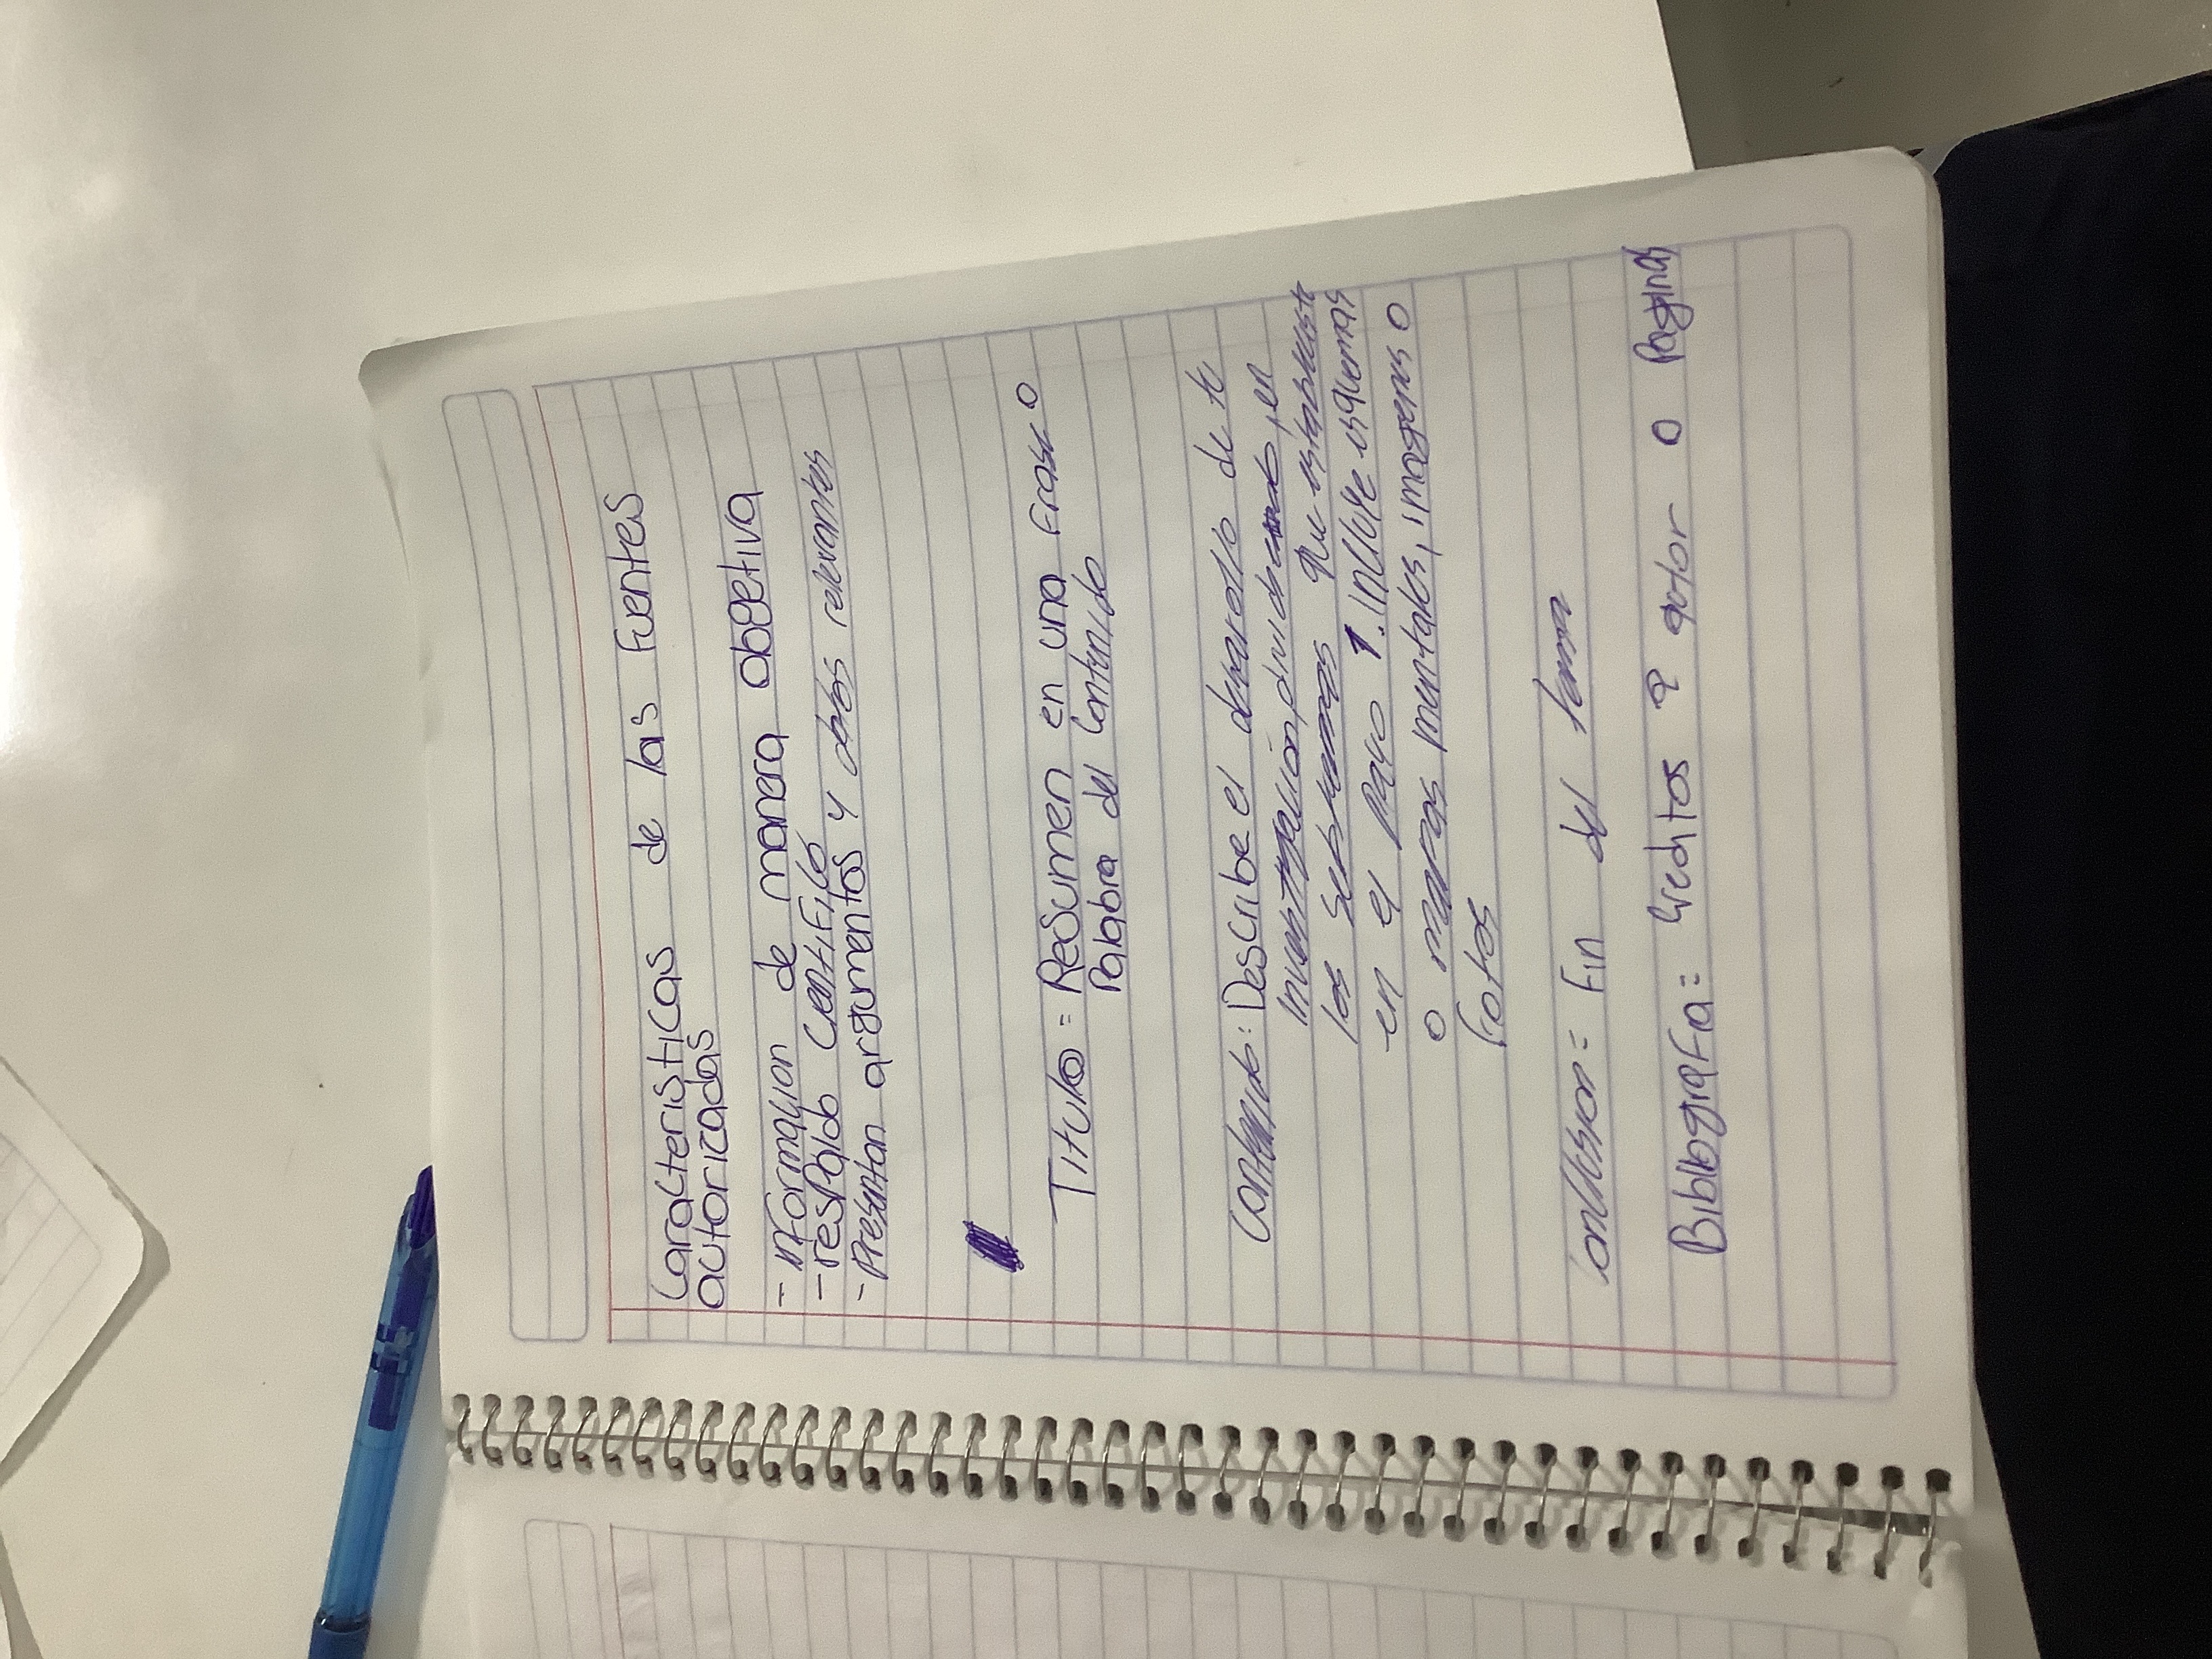 Caracteristicas de las Fuentes
autorizadas
- informacion de manera obgetiva
- respaldo cientifico
- Presentan argumentos y datos relevantes
Titulo = Resumen en una Frase o
Palabra del contenido
Contenido: Describe el desarrollo de tu
investigación, dividiendo, en
los subtemas que estableciste
en el paso 1. incluye esquemas
o mapas mentales, imagenes o
fotos
Conclusion = Fin del tema
Bibliografia = Creditos a autor o Paginas